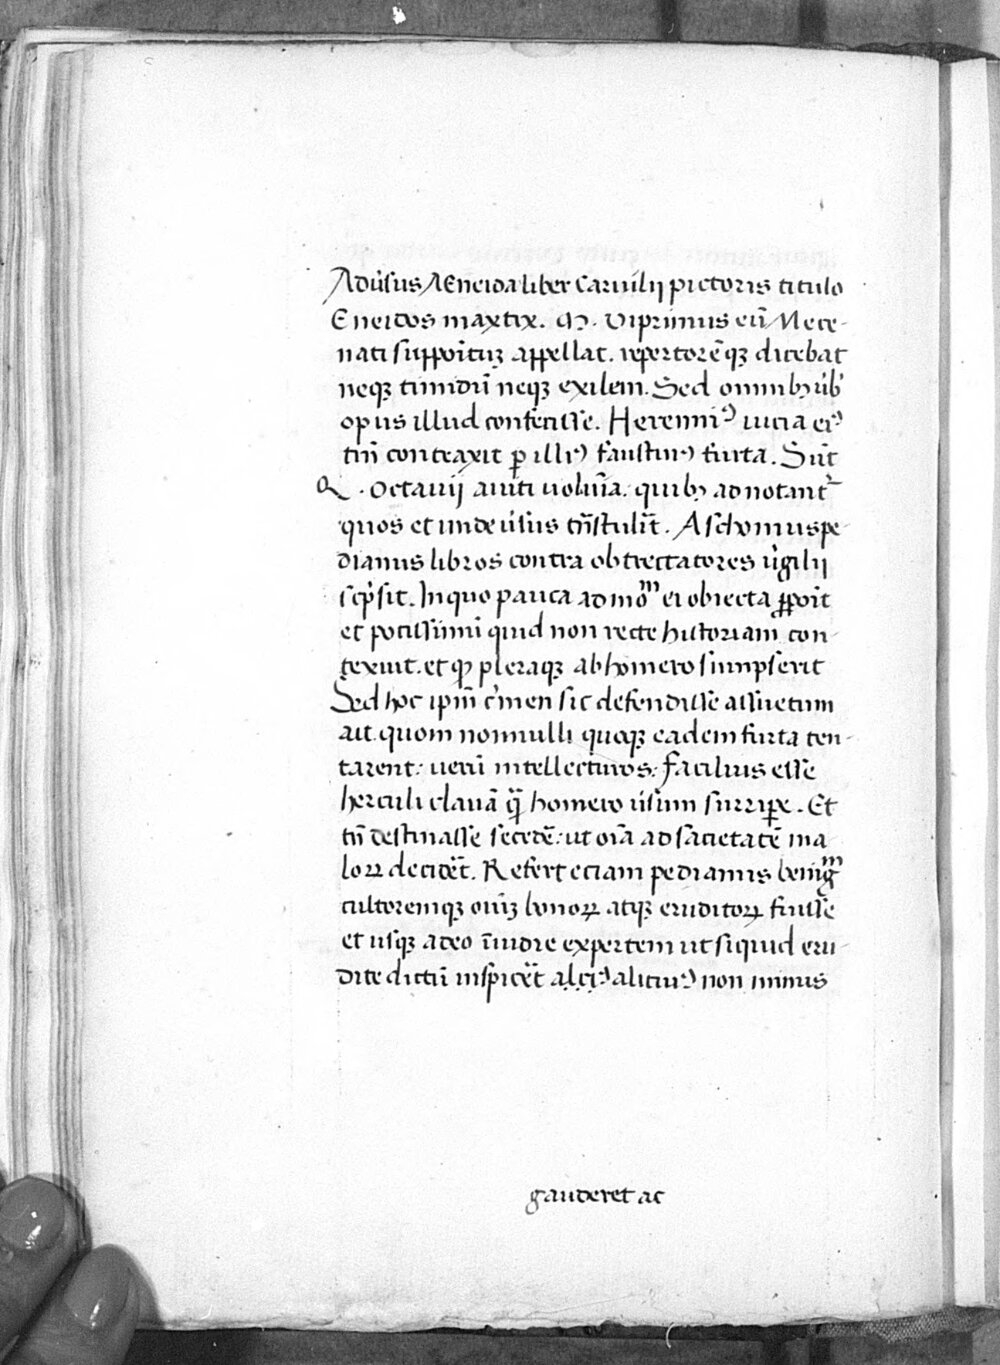 Adu͛sus AEneida liber Caruilij pictoris titulo
Eneidos maxtix. M. Viprimus eū Mece-
nati suppoituʒ appellat. repertorēqʒ dicebat
neqʒ timidū neqʒ exilem. Sed omnibʒ u͛ib᾽
opus illud confecisse. Herenniꝰ uicia eiꝰ
tm̄ contraxit ꝑ illiꝰ faustinꝰ furta. Sūt
Q. Octauij auiti uolum̄a. quibʒ adnotant᷑
quos et unde u͛sus tn̄stulīt. Aschomuspe-
dianus libros contra obtrectatores u͛gilij
sc͛psit. In quo pauca admoᵐ ei obiecta ꝓpoīt
et potissimū quid non recte historiam con-
texuit. et ꝙ pleraqʒ ab homero sumpserit
Sed hoc ipm̄ c͛men sic defendisse assuetum
ait. quom nonnulli quoqʒ eadem furta ten-
tarent: uerū intellecturos: facilius esse
herculi clauā q̄ homero u͛sum surriꝑe. Et
tn̄ destinasse secedē: ut oīa ad satietatē ma
loꝝ decidēt. Refert eciam pedianus benigᵐ
cultoremqʒ oīuʒ bonoꝝ atqʒ eruditoꝝ fuisse
et usqʒ adeo īuidie expertem ut siquid eru-
dite dictū inspicēt alc̣ịꝰ alitiuꝰ non minus
gauderet ac